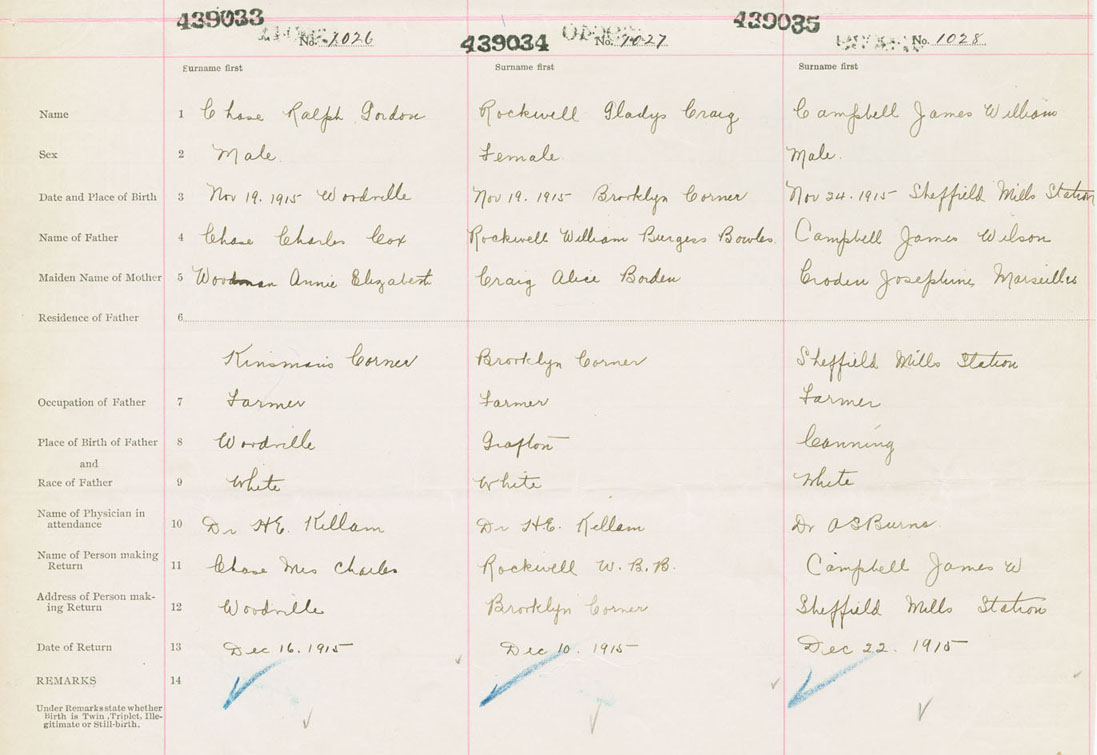 439033 439034 439035
No. 1026 No. 1027 No. 1028
Surname first Surname first Surname first
Name 1 Chase Ralph Gordon Rockwell Gladys Craig Campbell James William
Sex 2 Male. Female Male.
Date and Place of Birth 3 Nov 19. 1915 Woodville Nov 19. 1915 Brooklyn Corner Nov 24. 1915 Sheffield Mills Station
Name of Father 4 Chase Charles Cox Rockwell William Burgess Bowles Campbell James Wilson
Maiden Name of Mother 5 Woodman Annie Elizabeth Craig Alice Borden Josephine Marseilles
Residence of Father 6
Kinsman's Corner Brooklyn Corner Sheffield Mills Station
Occupation of Father 7 Farmer Farmer Farmer
Place of Birth of Father 8 Woodville Grafton Canning
and
Race of Father 9 White White White
Name of Physician in
attendance 10 Dr H.E. Killam Dr H.E. Killam Dr A S Burns.
Name of Person making
Return 11 Chase Mrs Charles Rockwell W. B. B. Campbell James W
Address of Person mak-
ing Return 12 Woodville Brooklyn Corner Sheffield Mills Station
Date of Return 13 Dec 16. 1915 Dec 10. 1915 Dec 22. 1915
REMARKS 14
Under Remarks state whether
Birth is Twin, Triplet, Ille-
gitimate or Still-birth.